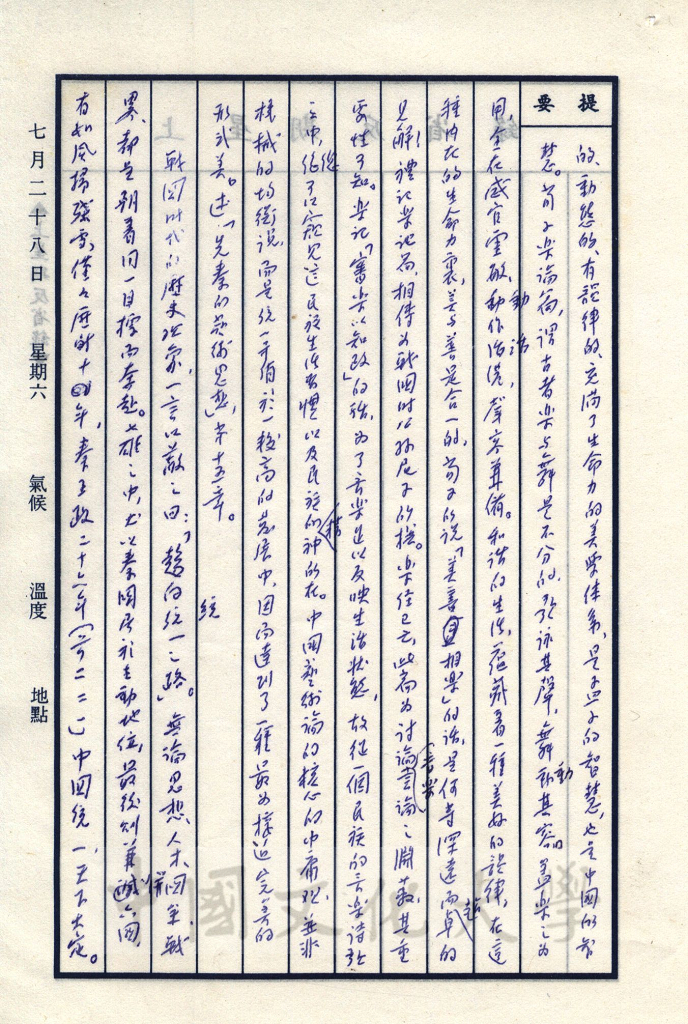 提要
的、動態的、有韻律的、充滿了生命力的美學体系，是孟子的智慧，也是中國的智
慧。荀子樂論篇，謂古者樂與舞是不分的，歌詠其聲，舞動其容。蓋樂之為
用全在感官靈敏，動作活潑，聲容兼備。和諧的生活，蘊藏着一種美好的韻律，在這
種內在的生命力裏，美與善是合一的，荀子所說「美善相樂」的話，是何等深遠而卓越的
見解！禮記樂記篇，相傳為戰國時公孫尼子所撰。樂經已亡，此篇為討論音樂理論之淵藪，其重
要性可知。樂記「審樂以知政」的話，為了音樂足以反映生活狀態，故從一個民族的音樂詩歌
之中，往往可以窺見這民族生活習慣以及民族精神所在。中國藝術論的核心的中庸觀，並非
機械的均衡說，而是統一矛盾於一較高的發展中，因而達到了一種最為樣近完美的
形式美。述「先秦的藝術思想」，第十五章。
戰國時代的歷史現象，一言以蔽之曰：「趨向統一之路」。無論思想、人才、國軍戰
累，都是朝着同一目標而奔赴。七雄之中，尤以秦國居於主動地位，最後則兼併六國
有如風掃殘雲，僅僅歷時十四年，秦王政二十六年（前二二一）中國統一，天下大定。
七月二十八日 星期六 氣候 溫度 地點
中國文化大學